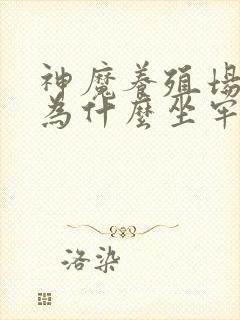 神魔養殖場
為什麼坐牢
洛染